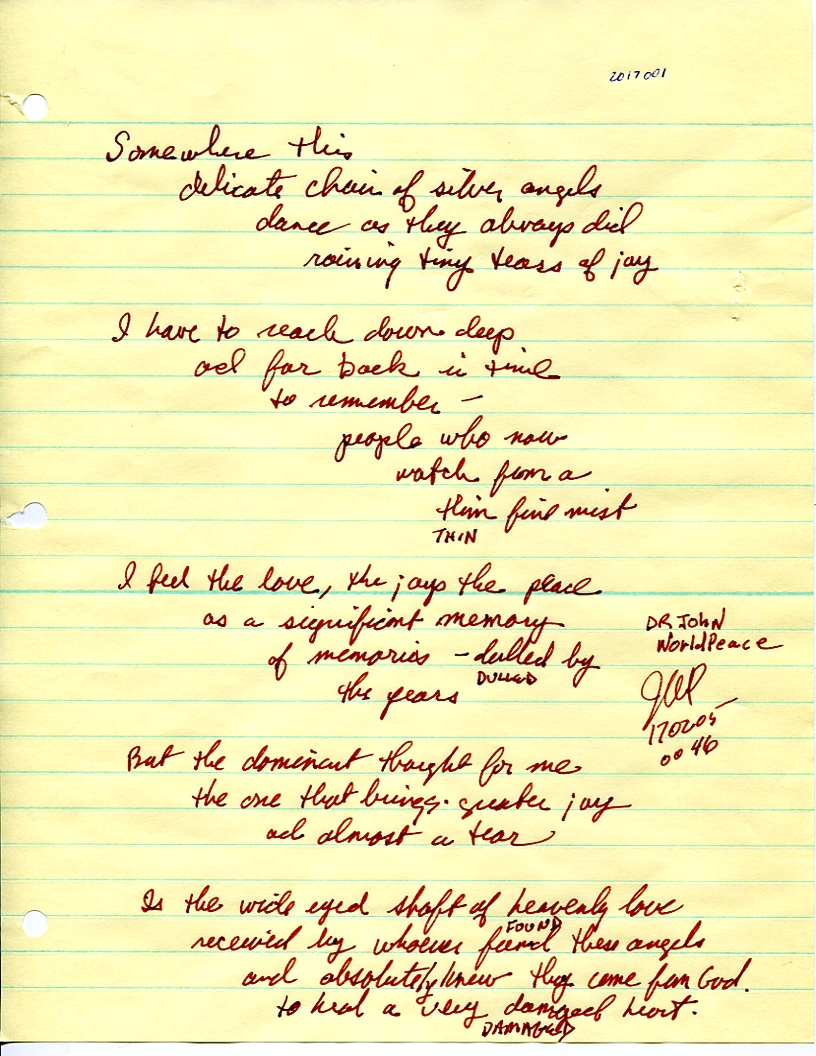 2017001
Somewhere this
delicate chain of silver angels
dance as they always did
raining tiny tears of joy
I have to reach down deep
ad far back in time
to remember –
people who now
watch from a
thin fine mist
THIN
I feel the love, the joys the peace
as a significant memory
of memories – dulled by
DULLED
the years
DR JOHN
WorldPeace
JWP
170205
0046
But the dominant thought for me
the one that brings greater joy
ad almost a tear
Is the wide eyed shaft of heavenly love
FOUND
received by whoever found these angels
and absolutely knew they come from God.
to heal a very damaged heart.
DAMAGED